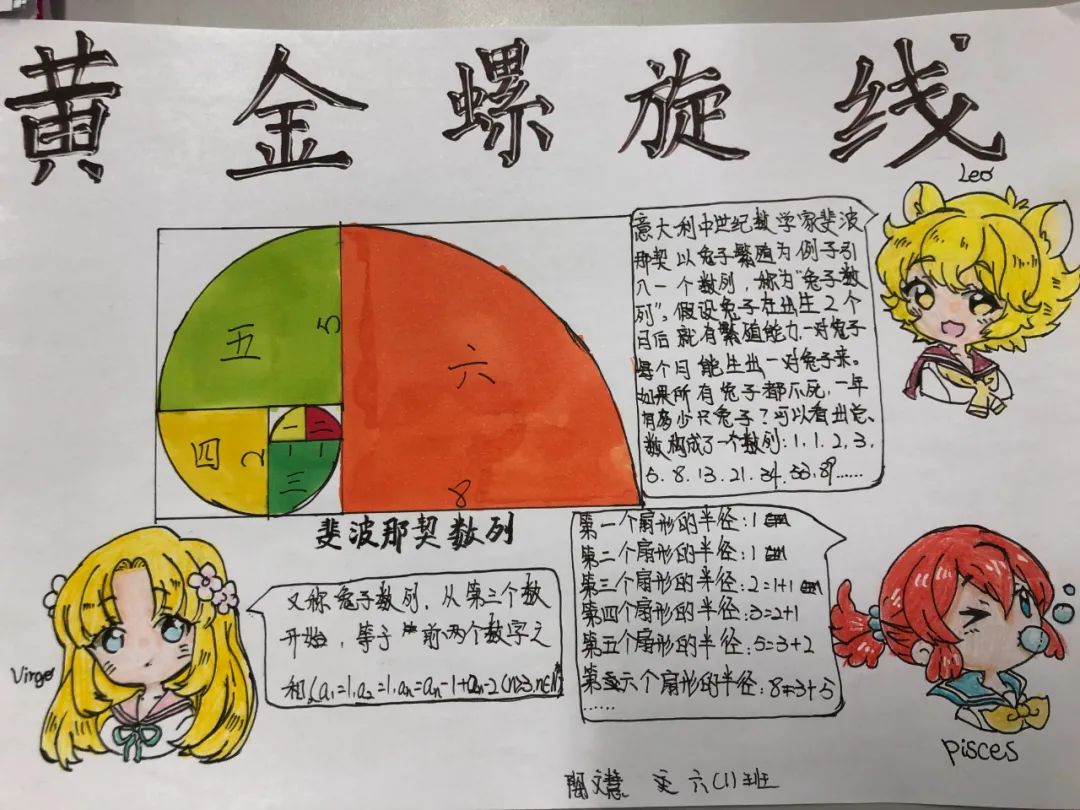 黄金螺旋线
Leo
意大利中世纪数学家斐波
那契以兔子繁殖为例子引
入一个数列，称为"兔子数
列"。假设兔子在出生2个
月后就有繁殖能力，一对兔子
每个月能生出一对兔子来。
如果所有兔子都不死，一年
有多少只兔子？可以看出
数构成了一个数列：1.1.2.3.
5.8.13.21.34.55.89......
五
5
六
8
四
2
一
1
二
1
三
斐波那契数列
第一个扇形的半径：1
第二个扇形的半径：1
第三个扇形的半径：2=1+1
第四个扇形的半径：3=2+1
第五个扇形的半径：5=3+2
第六个扇形的半径：8=3+5
......
Pisces
Virgo
又称兔子数列，从第三个数
开始，等于前两个数字之
和(a₁=1,a₂=1,an=an-1+an-2(n≥3,n∈N
六(1)班